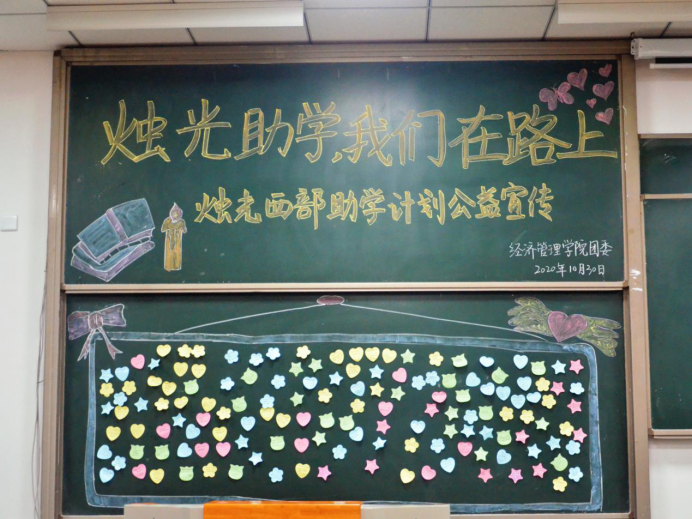 烛光助学,我们在路上
烛光西部助学计划公益宣传
经济管理学院团委
2020年10月30日